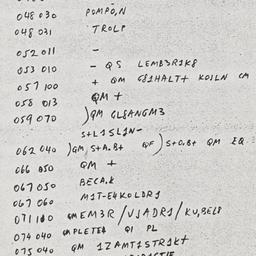 048 030 POMPO,N
048 031 TROLP
052 011 -
053 010 - QS LEMB3R1K8
057 100 + QM G81HALT+ KO1LN CM
058 013 QM +
059 070 )QM GL8ANGM3
S+L1SL1N-
062 040 )QM, S+A.B+ QF) S+O.B+ QM EQ
066 050 QM +
067 050 BECA,K
067 060 M1T-E4KOLDR1
071 100 QM EM3R/VJADR1/KU,BEL8
074 040 QMPLETE8 Q1 PL
075 040 QM 1ZAMT1STR1KT